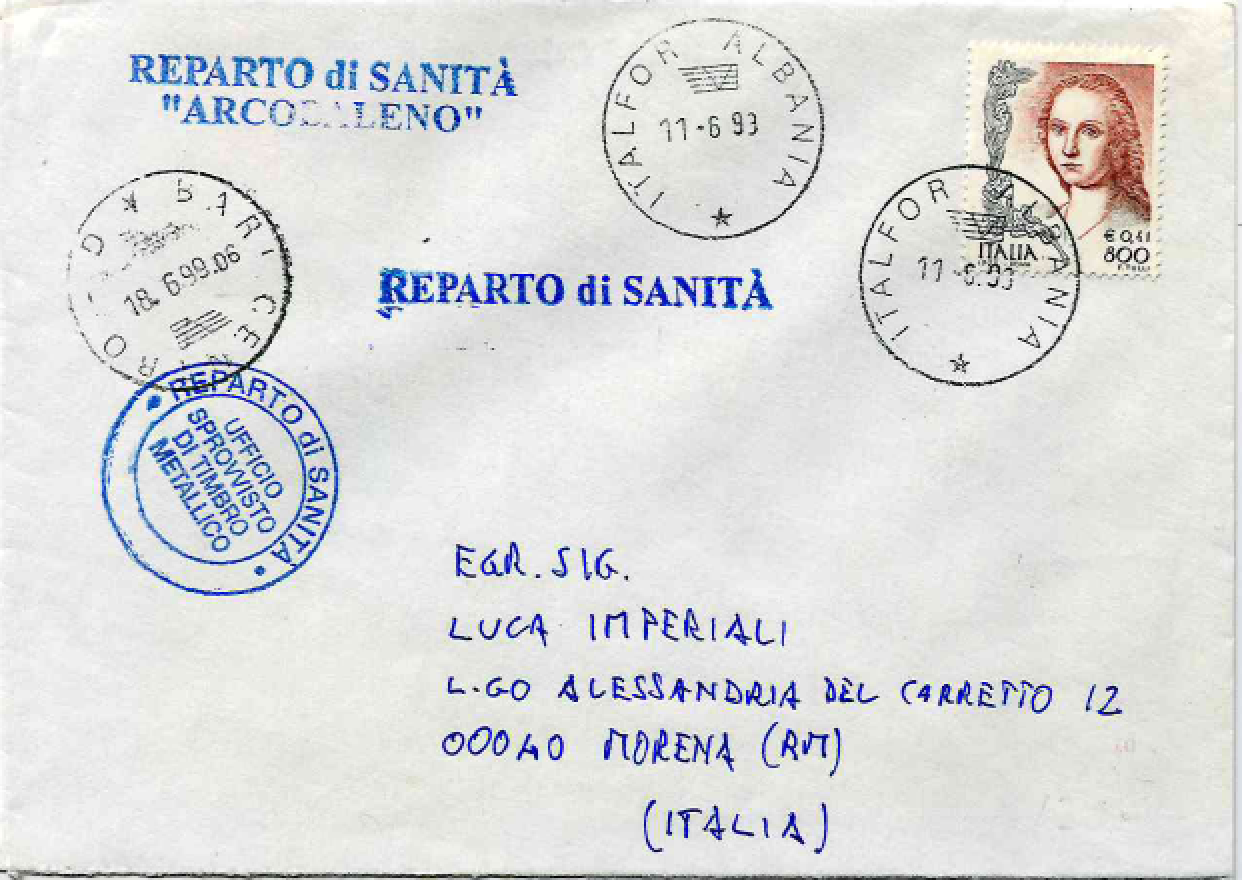 REPARTO di SANITÀ
"ARCOBALENO"
ITALFOR ALBANIA
11-6 99
ITALIA
€ 0,41
800
ITALFOR ALBANIA
11-6.99
BARI CENTRO
18. 6 99.06
REPARTO di SANITÀ
REPARTO di SANITÀ
UFFICIO
SPROVVISTO
DI TIMBRO
METALLICO
EGR. SIG.
LUCA IMPERIALI
L.GO ALESSANDRIA DEL CARRETTO 12
00040 MORENA (RM)
(ITALIA)